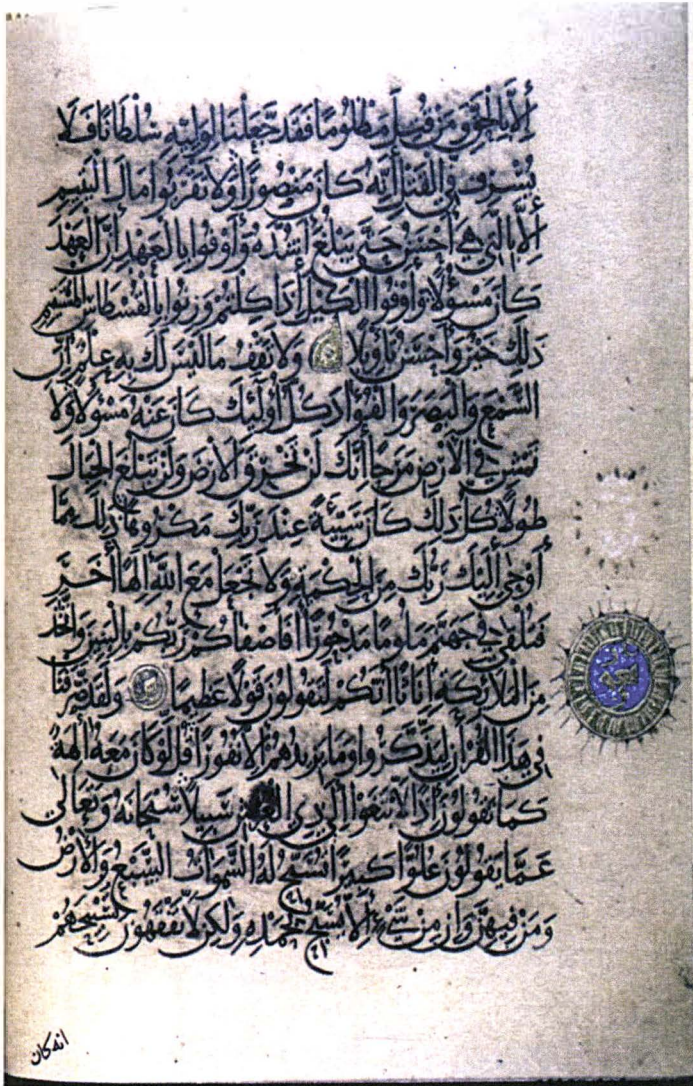 إلا بالحق ومن قتل مظلوما فقد جعلنا لوليه سلطانا فلا
يسرف في القتل إنه كان منصورا ولا تقربوا مال اليتيم
إلا بالتي هي أحسن حتى يبلغ أشده وأوفوا بالعهد إن العهد
كان مسؤلا وأوفوا الكيل إذا كلتم وزنوا بالقسطاس المستقيم
ذلك خير وأحسن تأويلا ولا تقف ما ليس لك به علم إن
السمع والبصر والفؤاد كل أولئك كان عنه مسؤلا ولا
تمش في الأرض مرحا إنك لن تخرق الأرض ولن تبلغ الجبال
طولا كل ذلك كان سيئة عند ربك مكروها ذلك مما
أوحى إليك ربك من الحكمة ولا تجعل مع الله إلها أخر
فتلقى في جهنم ملوما مدحورا أفأصفاكم ربكم بالبنين واتخذ
من الملائكة إناثا إنكم لتقولون قولا عظيما ولقد صرفنا
في هذا القرآن ليذكروا وما يزيدهم إلا نفورا قل لو كان معه آلهة
كما تقولون إذا لابتغوا إلى ذي العرش سبيلا سبحانه وتعالى
عما يقولون علوا كبيرا تسبح له السموات السبع والأرض
ومن فيهن وإن من شيء إلا يسبح بحمده ولكن لا تفقهون تسبيحهم
انه كان